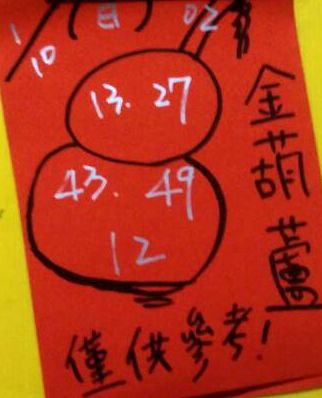 1/10 (日) 02
13. 27
43. 49
12
金葫蘆
僅供參考!